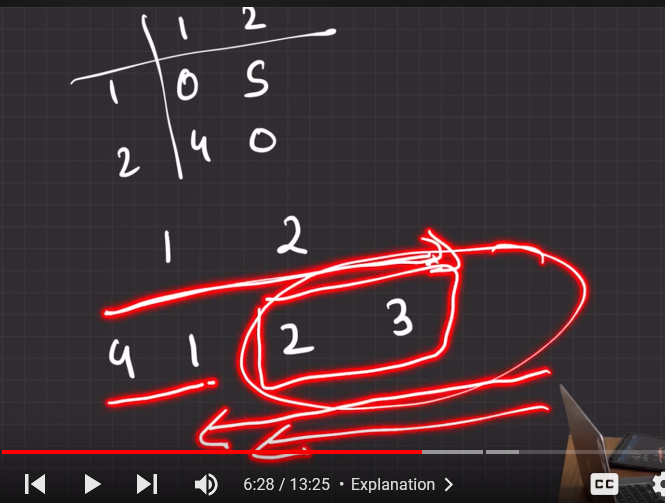 1 2
1 0 5
2 4 0
1 2
4 1 2 3
6:28 / 13:25 • Explanation
CC